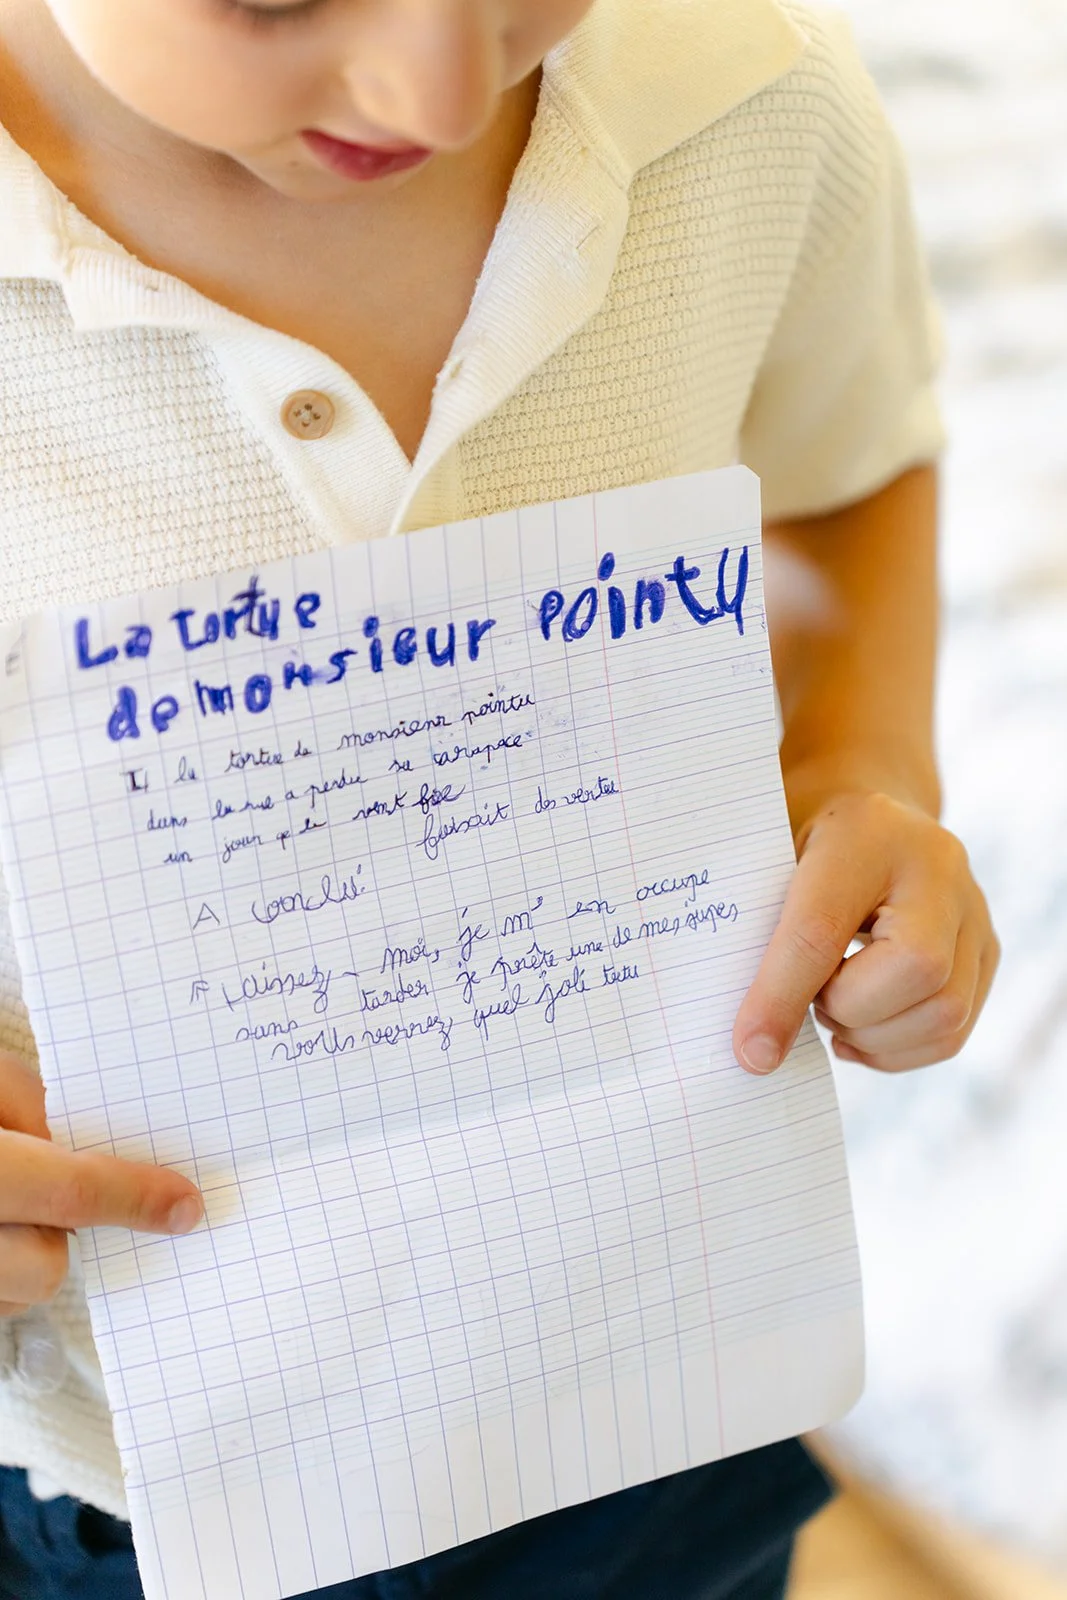 La tortue
de monsieur pointu
I la tortue de monsieur pointu
dans la rue a perdu sa carapace
un jour q le vent
faisait des vertu
A conclu:
F Laissez-moi, je m'en occupe
sans tarder je prête une de mes jupes
vous verrez quel joli tutu